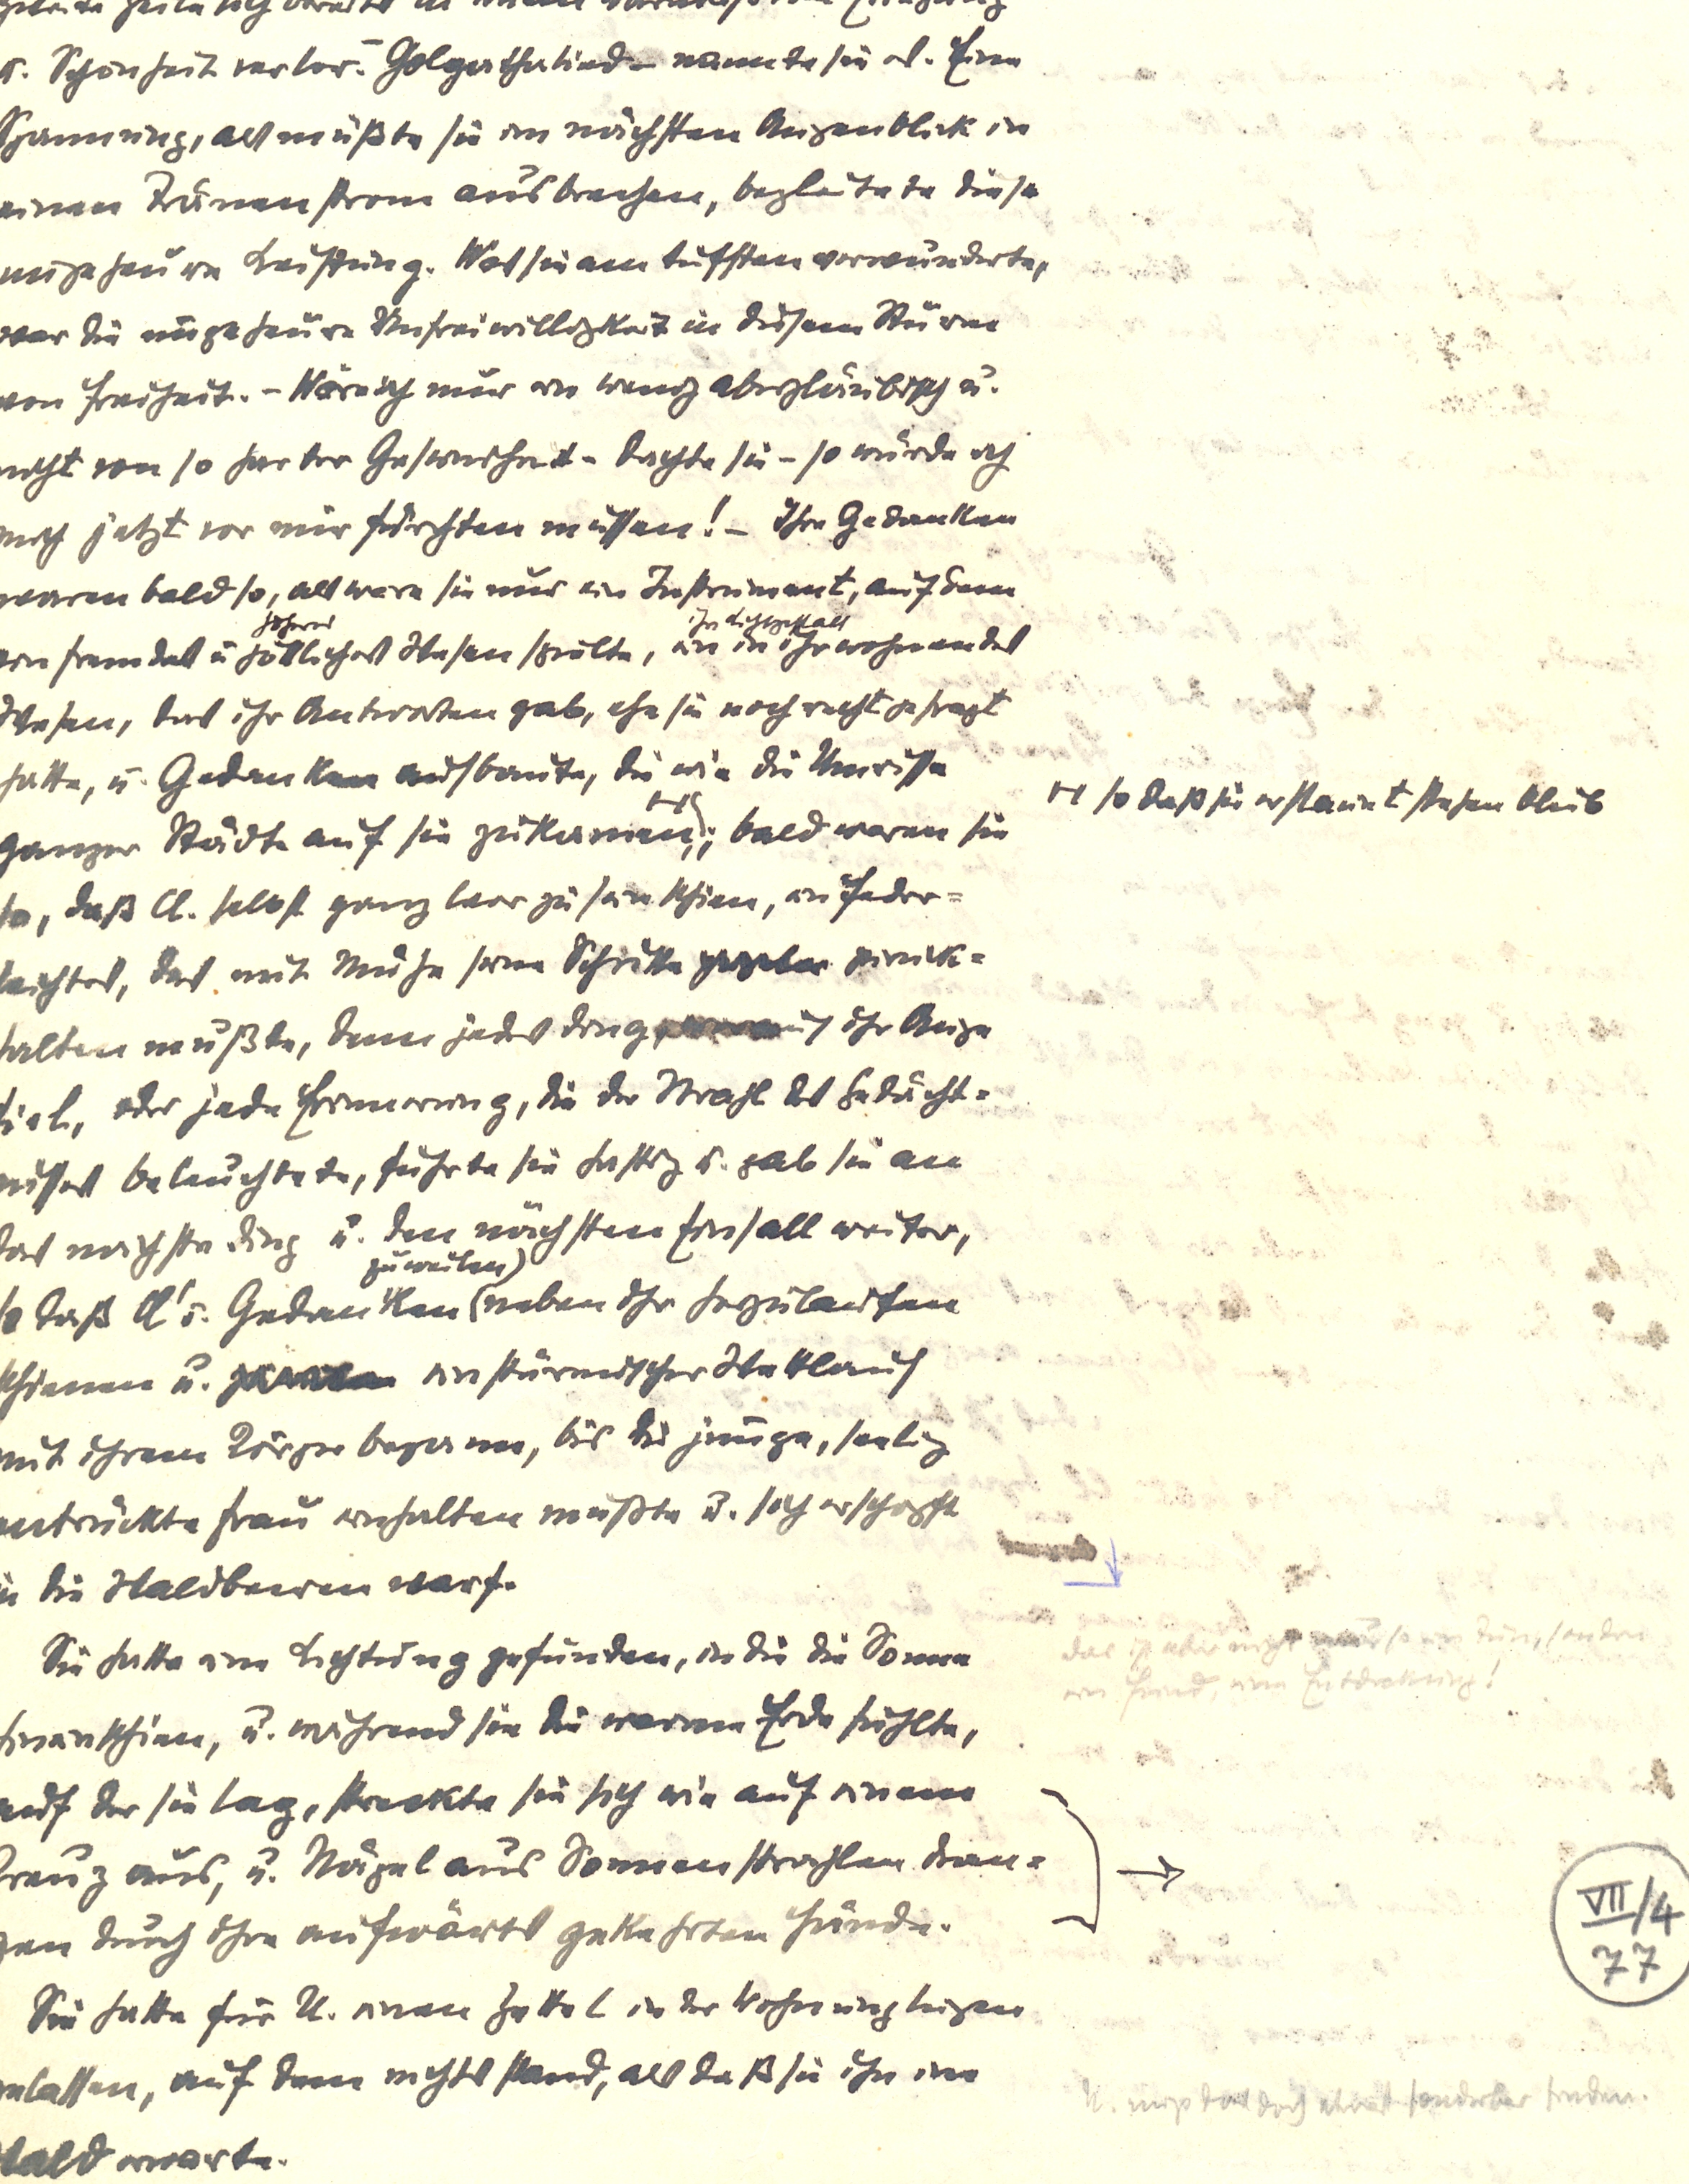 u. Schönheit verlor. – Golgathalied – nannte sie es. Eine
Spannung, als müßte sie im nächsten Augenblick in
einen Tränenstrom ausbrechen, begleitete diese
ungeheure Leistung. Was sie am tiefsten verwunderte,
war die ungeheure Unfreiwilligkeit in diesem Sturm
von Freiheit. – Wäre ich nur ein wenig abergläubisch u.
nicht von so harter – dachte sie – so würde ich
mich jetzt vor mir fürchten müssen! – Ihre Gedanken
waren bald so, als wäre sie nur ein Instrument, auf dem
höheres
ihre Lichtgestalt
ein fremdes u göttliches Wesen spielte, ein in ihr wohnendes
Wesen, das ihr Antworten gab, ehe sie noch recht gefragt
hatte, u. Gedanken aufbaute, die wie die Umrisse
ganzer Städte auf sie zukamen; bald waren sie
so daß sie erstaunt stehen blieb
so, daß Cl. selbst ganz leer zu sein schien, ein Feder=
leichtes, das mit Mühe seine Schritte zurück=
halten mußte, denn jedes Ding, ihr Auge
fiel, oder jede Erinnerung, die der Strahl des Gedächt=
nisses beleuchtete, führte sie hastig u. gab sie an
das nächste Ding u. den nächsten Einfall weiter,
zuweilen
so daß Cl's. Gedanken neben ihr herzulaufen
schienen u. ein stürmischer Wettlauf
mit ihrem Körper begann, bis die junge, selig
entrückte Frau einhalten mußte u. sich erschöpft
in die Waldbeeren warf.
Sie hatte eine Lichtung gefunden, in die die Sonne
das ist aber nicht so ein Tun, sondern
ein Fund, eine Entdeckung!
hineinschien, u. während sie die warme Erde fühlte,
auf der sie lag, streckte sie sich wie auf einem
Kreuz aus, u. Nägel aus Sonnenstrahlen dran=
gen durch ihre aufwärts gekehrten Hände.
VII/4
77
Sie hatte für U. einen Zettel in der Wohnung liegen
gelassen, auf dem nichts stand, als daß sie ihn im
U. muß das doch etwas sonderbar finden.
Wald erwarte.